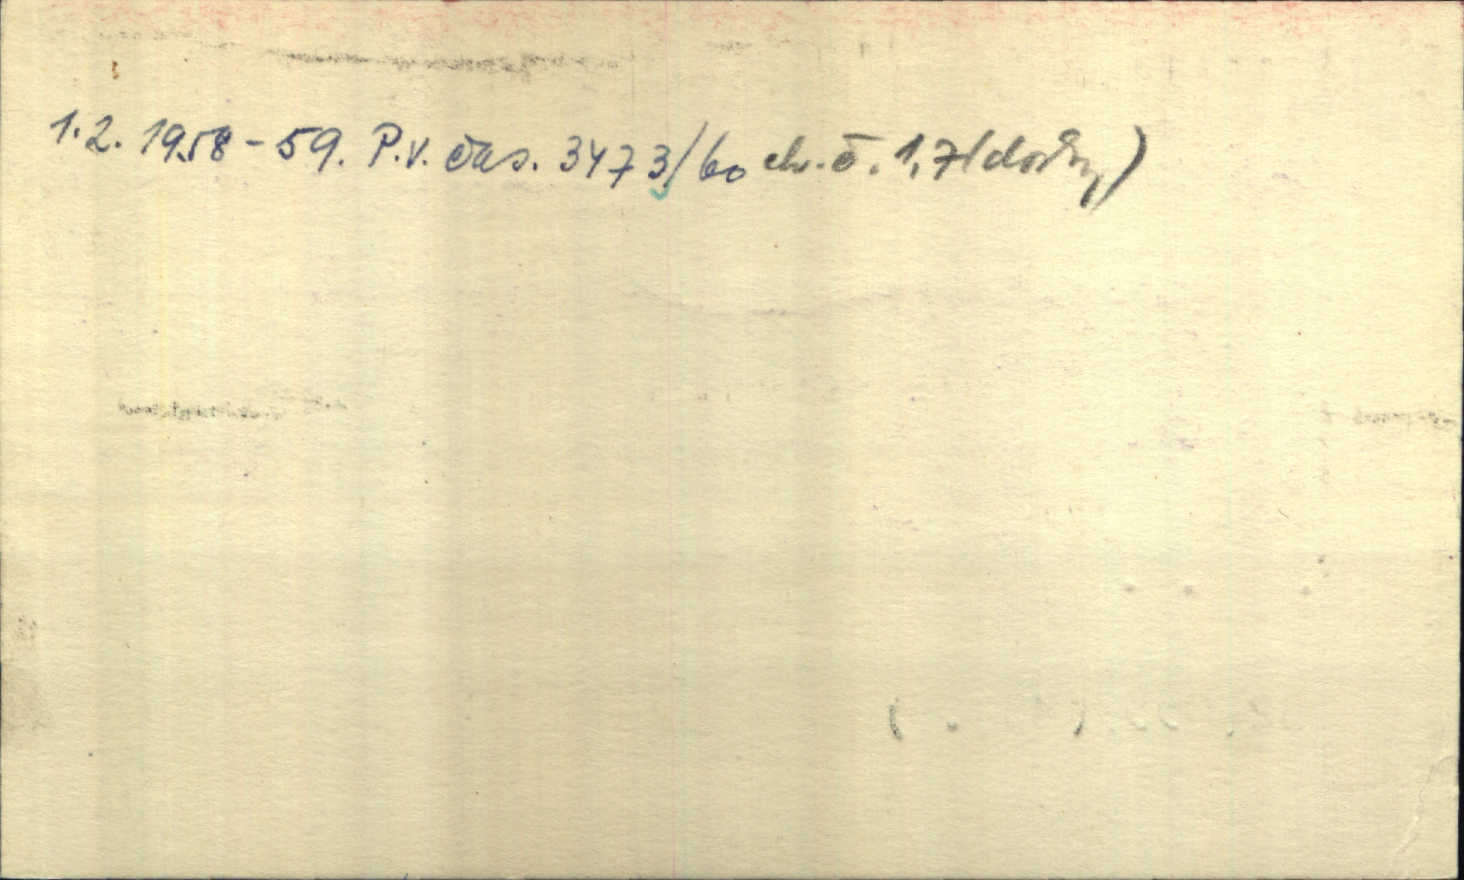 1.2. 1958-59. P.v. čas. 3473/60 chv. č. 1,7(došly)